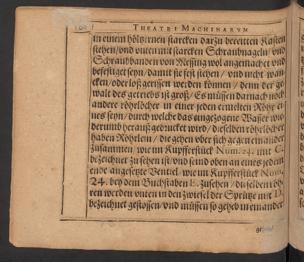 THEATRI MACHINARVM
in einem höltzernen starcken darzu bereitten Kasten
stehen/vnd vnten mit starcken Schraubnägeln/vnd
Schraubbanden von Messing wol angemachet vnd
befestiget seyn/damit sie fest stehen/vnd nicht wan-
cken/oder loß gerissen werden können/denn der ge-
walt des getriebs ist groß/Es müssen darnach noch
andere röhrlöcher in einer jeden ermelten Röhr ei-
nes seyn/durch welche das eingezogene Wasser wi-
derumb herauß gedrucket wird/dieselben röhrlöcher
haben Röhrlein/die gehen vber sich gegen einander
zusammen/wie im Kupfferstück Num. 24. mit C.
bezeichnet zu sehen ist/vnd seind oben an eines jeden
ende angesetzte Ventiel/wie im Kupfferstück Num.
24. bey dem Buchstaben E. zusehen/dieselben röh-
ren werden vnten in den zwiesel der Sprütze mit D.
bezeichnet gestossen/vnd müssen so geheb in einander